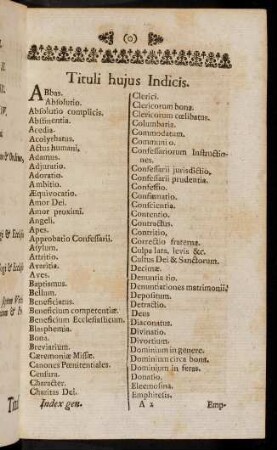 (o)
Tituli hujus Indicis.
ABbas.
Absolutio.
Absolutio complicis.
Abstinentia.
Acedia.
Acolythatus.
Actus humani,
Adamus.
Adjuratio.
Adoratio.
Ambitio.
Æquivocatio.
Amor Dei.
Amor proximi.
Angeli.
Apes.
Approbatio Confessarii.
Asylum.
Attritio.
Avaritia.
Aves.
Baptismus.
Bellum.
Beneficiatus.
Beneficium competentiæ.
Beneficium Ecclesiasticum.
Blasphemia.
Bona.
Breviarium.
Cæremoniæ Missæ.
Canones Pœnitentiales.
Censura.
Character.
Charitas Dei.
Index gen.
Clerici.
Clericorum bona.
Clericorum cœlibatus.
Columbaria.
Commodatum.
Communio.
Confessariorum Instructio-
nes.
Confessarii jurisdictio.
Confessarii prudentia.
Confessio.
Confirmatio.
Conscientia.
Contentio.
Contractus.
Contritio.
Correctio fraterna.
Culpa lata, levis &c.
Cultus Dei & Sanctorum.
Decimæ.
Denuntiatio.
Denuntiationes matrimonii
Depositum.
Detractio.
Deus
Diaconatus.
Divinatio.
Divortium.
Dominium in genere.
Dominium circa bona.
Dominium in feras.
Donatio.
Eleemosina.
Emphitesis.
A 2
Emp-